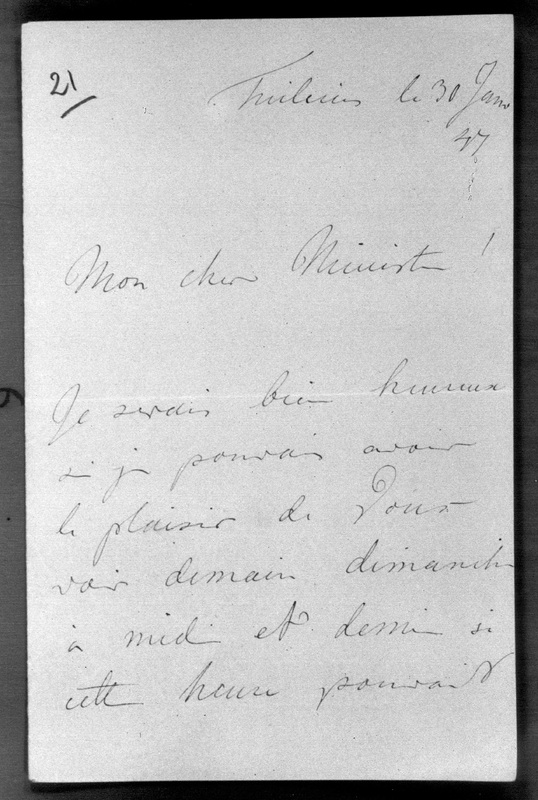 21
Tuileries le 30 Janv
47
Mon cher Ministre !
Je serais bien heureux
si je pouvais avoir
le plaisir de Vous
voir demain dimanche
à midi et demie si
cette heure pouvait